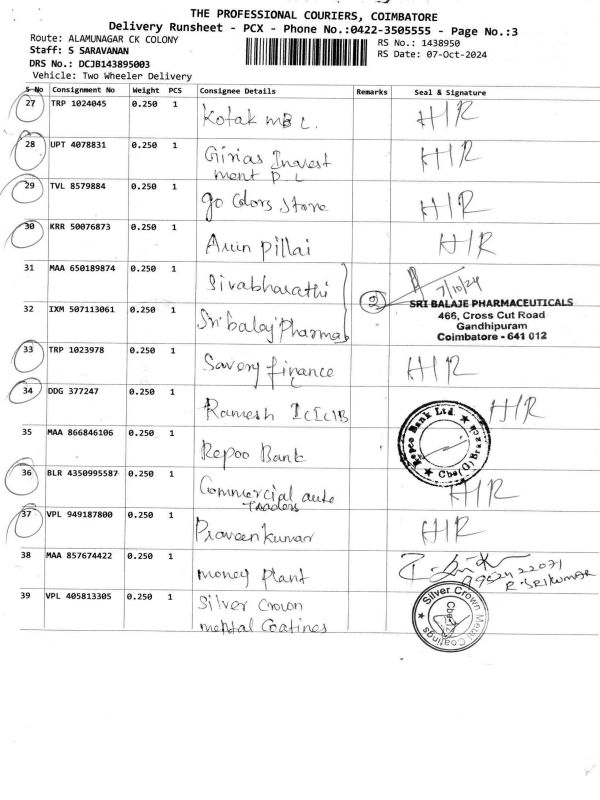 THE PROFESSIONAL COURIERS, COIMBATORE
Delivery Runsheet - PCX - Phone No.:0422-3505555 - Page No.:3
Route: ALAMUNAGAR CK COLONY
RS No.: 1438950
Staff: S SARAVANAN
RS Date: 07-Oct-2024
DRS No.: DCJB143895003
Vehicle: Two Wheeler Delivery
S No Consignment No Weight PCS Consignee Details Remarks Seal & Signature
27 TRP 1024045 0.250 1 Kotak MB L. H/R
28 UPT 4078831 0.250 1 Girias Invest H/R
ment P L
29 TVL 8579884 0.250 1 go Colors Store H/R
30 KRR 50076873 0.250 1 Arun Pillai H/R
31 MAA 650189874 0.250 1 Sivabharathi
7/10/24
SRI BALAJE PHARMACEUTICALS
466, Cross Cut Road
Gandhipuram
Coimbatore - 641 012
32 IXM 507113061 0.250 1 Sri balaj Pharmas
33 TRP 1023978 0.250 1 Savery finance H/R
34 DDG 377247 0.250 1 Ramesh ICICIB H/R
35 MAA 866846106 0.250 1 Repoo Bank
Repco Bank Ltd.
36 BLR 4350995587 0.250 1 Commercial auto H/R
Traders
37 VPL 949187800 0.250 1 Praveen kumar H/R
38 MAA 857674422 0.250 1 money plant
R. SRIKUMAR
39 VPL 405813305 0.250 1 Silver Crown
mental Coatines
Silver Crown Metal Coatings